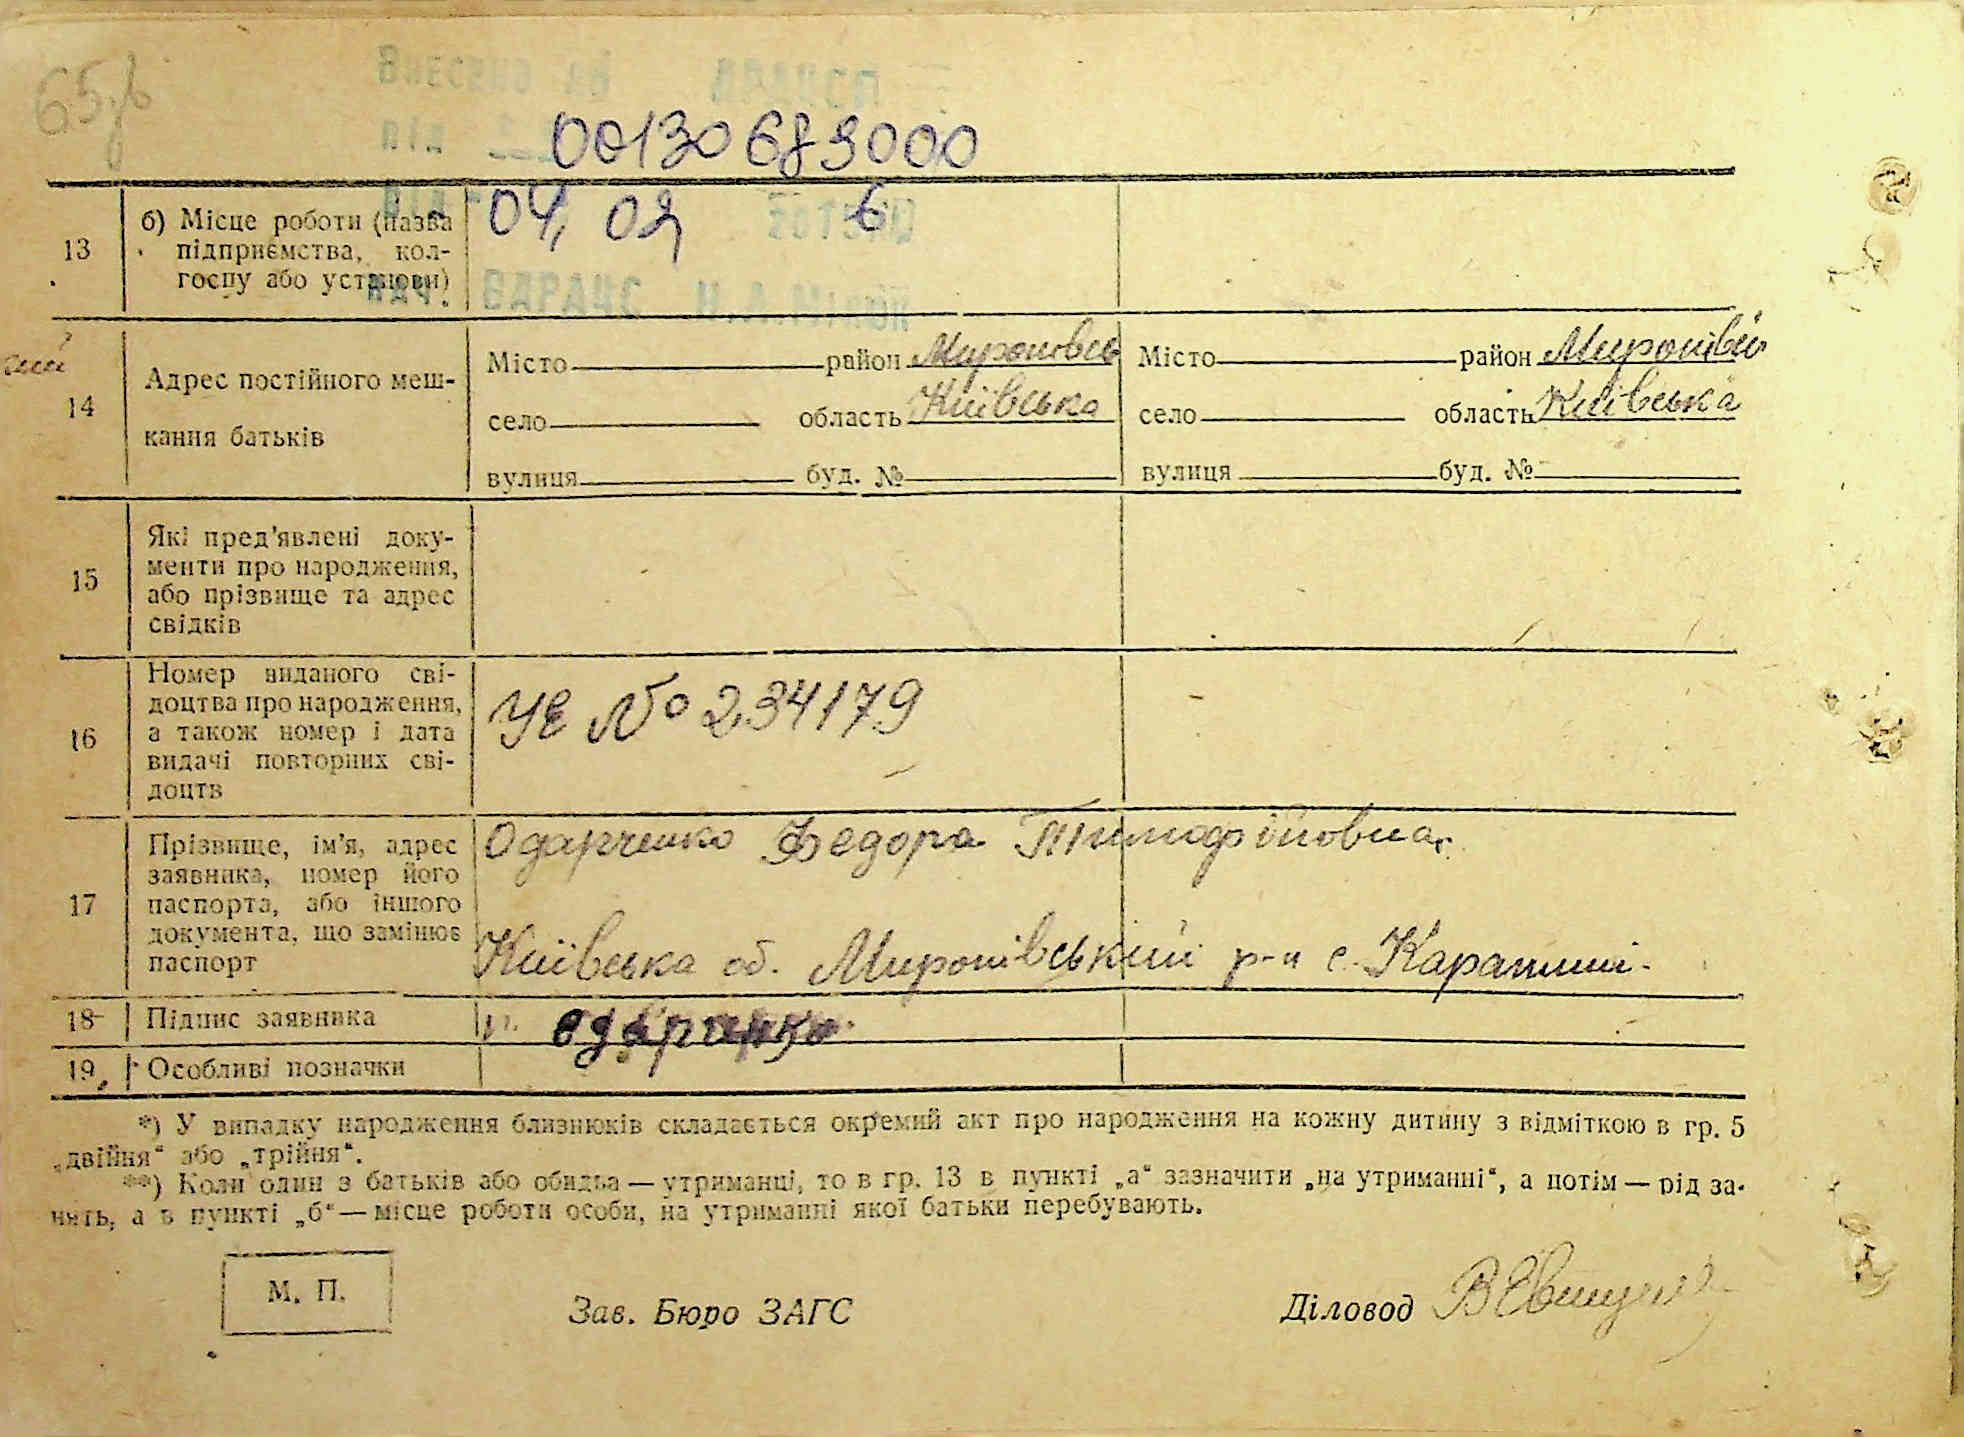 65
Внесено до ДРАЦСГ
від
00130689000
04, 02 6
13
б) Місце роботи (назва
підприємства, кол-
госпу або установи)
Нач. ВДРАЦС
14
Адрес постійного меш-
кання батьків
Місто район Миронівськ
село область Київська
вулиця буд. №
Місто район Миронівськ
село область Київська
вулиця буд. №
15
Які пред'явлені доку-
менти про народження,
або прізвище та адрес
свідків
16
Номер виданого сві-
доцтва про народження,
а також номер і дата
видачі повторних сві-
доцтв
УЄ № 234179
17
Прізвище, ім'я, адрес
заявника, номер його
паспорта, або іншого
документа, що замінює
паспорт
Одарченко Федора Тимофійовна,
Київська об. Миронівський р-н с. Карапиші.
18
Підпис заявника
19
Особливі позначки
*) У випадку народження близнюків складається окремий акт про народження на кожну дитину з відміткою в гр. 5
„двійня“ або „трійня“.
**) Коли один з батьків або обидва — утриманці, то в гр. 13 в пункті „а“ зазначити „на утриманні“, а потім — рід за-
нять, а в пункті „б“ — місце роботи особи, на утриманні якої батьки перебувають.
М. П.
Зав. Бюро ЗАГС
Діловод